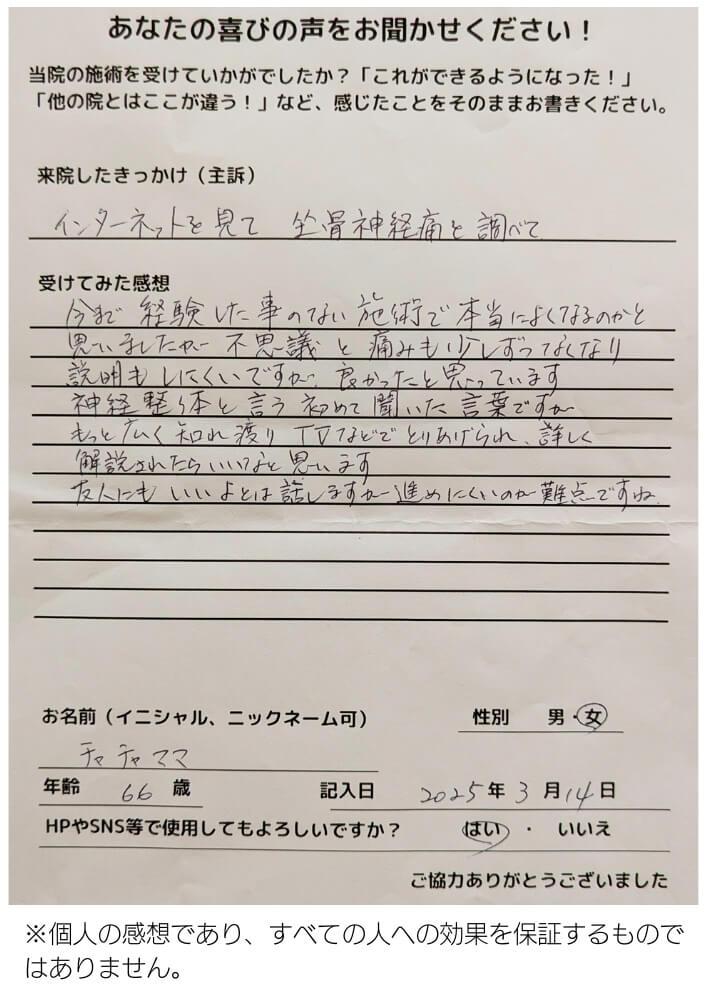 あなたの喜びの声をお聞かせください！
当院の施術を受けていかがでしたか？「これができるようになった！」
「他の院とはここが違う！」など、感じたことをそのままお書きください。
来院したきっかけ（主訴）
インターネットを見て 坐骨神経痛と調べて
受けてみた感想
今まで経験した事のない施術で本当によくなるのかと
思いましたが不思議と痛みも少しずつなくなり
説明もしにくいですが、良かったと思っています
神経整体と言う初めて聞いた言葉ですが
もっと広く知れ渡りTVなどでとりあげられ、詳しく
解説されたらいいなと思います
友人にもいいよとは話しますが進めにくいのが難点ですね。
お名前（イニシャル、ニックネーム可）
性別 男・女
チャチャママ
年齢 66 歳
記入日 2025年 3 月 14 日
HPやSNS等で使用してもよろしいですか？ はい ・ いいえ
ご協力ありがとうございました
※個人の感想であり、すべての人への効果を保証するもので
はありません。